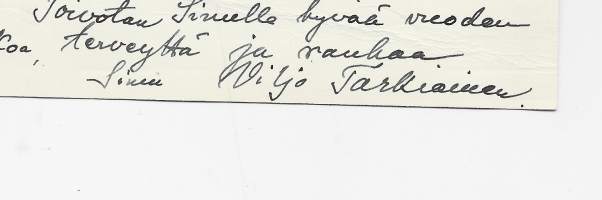 Toivotan Sinulle hyvää vuoden
koa, terveyttä ja rauhaa
Sinun Viljo Tarkiainen.